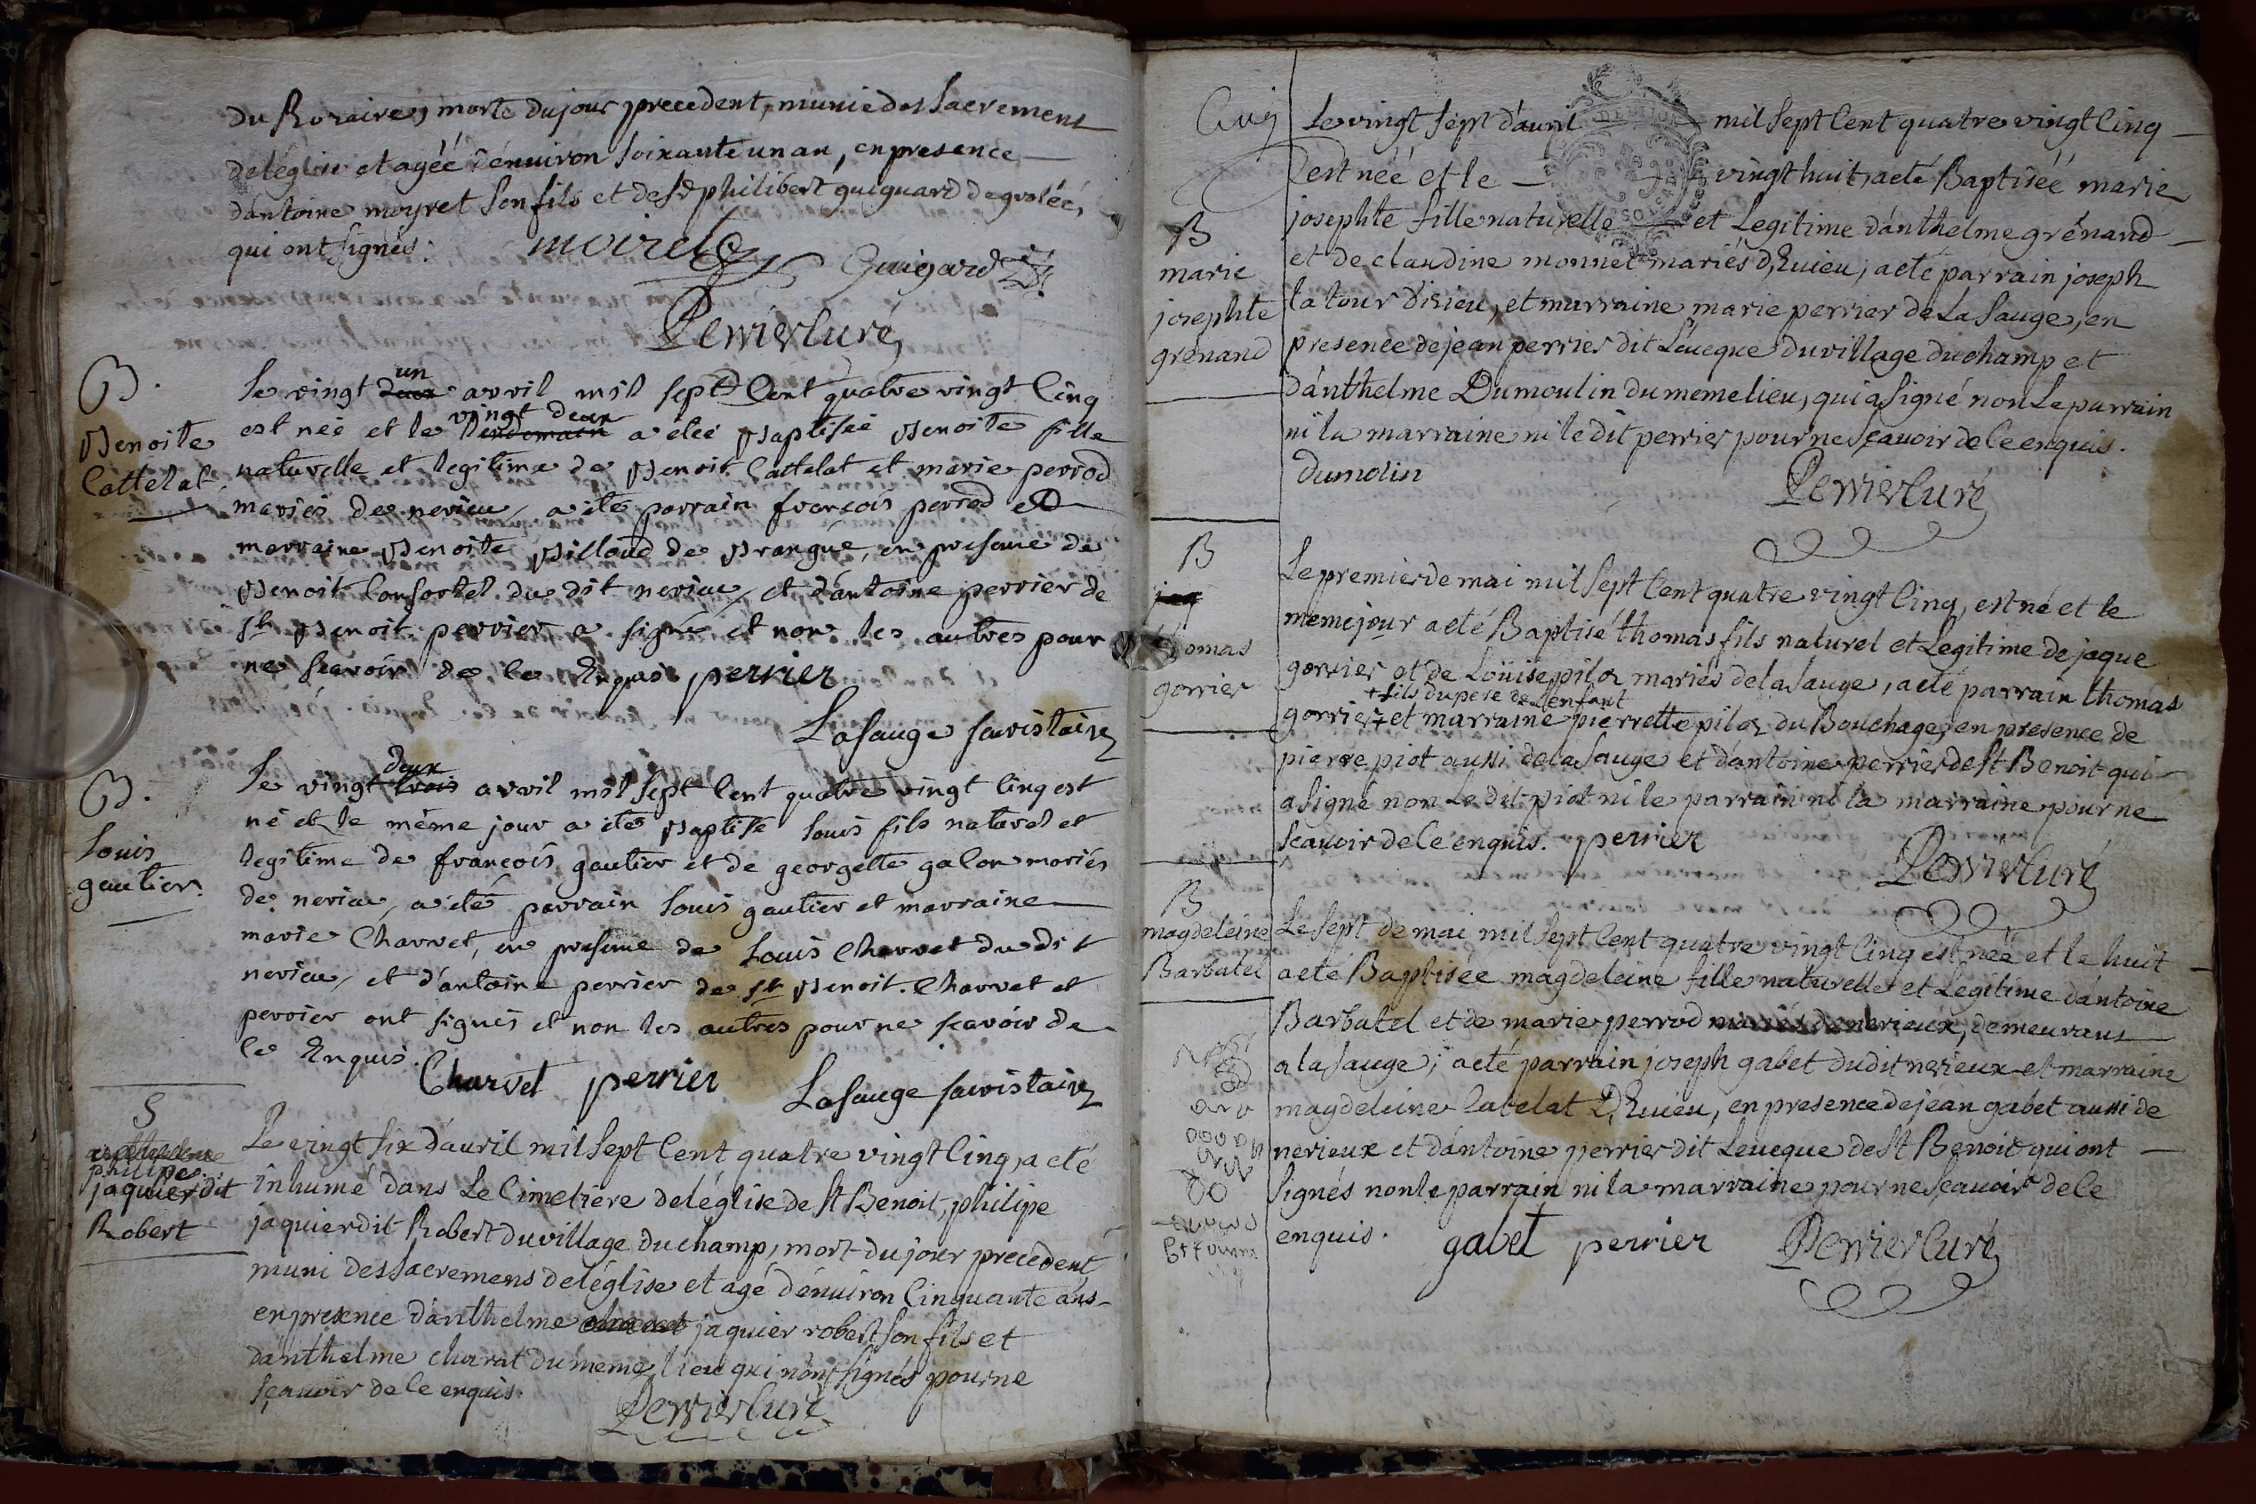 du Rozaire, morte du jour precedent, munie des sacremens
de l'église et agéé d'énuiron soixante un an, en presence
d'antoine moyret son fils et de Sr philibert guiguard de groléé,
qui ont signés.
moiret
Guigard
Perrier Curé
B.
Benoite
Cattelat
Le vingt deux un avril mil sept Cent quatre vingt Cinq
est néé et le lendemain vingt deux a étéé Baptiséé Benoite fille
naturelle et legitime de Benoit Cattelat et marie perrod
mariés de nerieu, a été parrain françois perrod et
marraine Benoite Billoud de Brangue, en presence de
Benoit Confortel du dit nerieu, et d'antoine perrier de
St Benoit. perrier a signé et non les autres pour
ne scavoir de ce Enquis perrier
Lasauge sacristain
B.
Louis
gautier.
Le vingt trois deux avril mil sept Cent quatre vingt Cinq est
né et le même jour a été Baptisé Louis fils naturel et
legitime de françois gautier et de georgette galon mariés
de nerieu, a été parrain Louis gautier et marraine
marie Charvet, en presence de Louis Charvet du dit
nerieu, et d'antoine perrier de St Benoit. Charvet et
perrier ont signés et non les autres pour ne scavoir de
ce Enquis.
Charvet perrier
Lasauge sacristain
S
anthelme
philipe
jaquier dit
Robert
Le vingt six d'auril mil sept Cent quatre vingt Cinq, a eté
inhumé dans Le Cimetiere de l'église de St Benoit, philipe
jaquier dit Robert du village du champ, mort du jour precedent
muni des sacremens de l'église et agé d'énuiron Cinquante ans
en presence d'anthelme jaquier robert son fils et
d'anthelme charat du meme lieu qui n'ont signés pour ne
sçauoir de ce enquis.
Perrier Curé
B
marie
josephte
grénand
Le vingt sept d'auril mil sept Cent quatre vingt Cinq
est néé et le vingt huit, a eté Baptiséé marie
josephte fille naturelle et Legitime d'anthelme grénand
et de claudine monnet mariés d'Euieu, a eté parrain joseph
latour d'isieu, et marraine marie perrier de La Sauge, en
presence de jean perrier dit Léueque du village du champ et
d'anthelme Dumoulin du meme lieu, qui a signé non Le parrain
ni la marraine ni le dit perrier pour ne sçauoir de ce enquis.
dumolin
Perrier Curé
B
jaq
thomas
gorrier
Le premier de mai mil sept Cent quatre vingt Cinq, est né et le
meme jour a eté Baptisé thomas fils naturel et Legitime de jaque
gorrier et de Loüise piloz mariés de la Sauge, a eté parrain thomas
+ fils du pere de l'enfant
gorrier + et marraine pierrette piloz du Bouchage, en presence de
pierre piot aussi de la Sauge et d'antoine perrier de St Benoit qui
a signé non Le dit piot ni le parrain ni la marraine pour ne
sçauoir de ce enquis. perrier
Perrier Curé
B
magdeleine
Barbatel
Le sept de mai mil sept Cent quatre vingt Cinq est néé et le huit
a eté Baptisée magdeleine fille naturelle et Legitime d'antoine
Barbatel et de marie perrod mariés de nerieux, demeurans
a la Sauge; a eté parrain joseph gabet du dit nerieux et marraine
magdeleine Catelat D'Euieu, en presence de jean gabet aussi de
nerieux et d'antoine perrier dit Leueque de St Benoit qui ont
signés non le parrain ni la marraine pour ne sçauoir de ce
enquis.
gabet perrier Perrier Curé